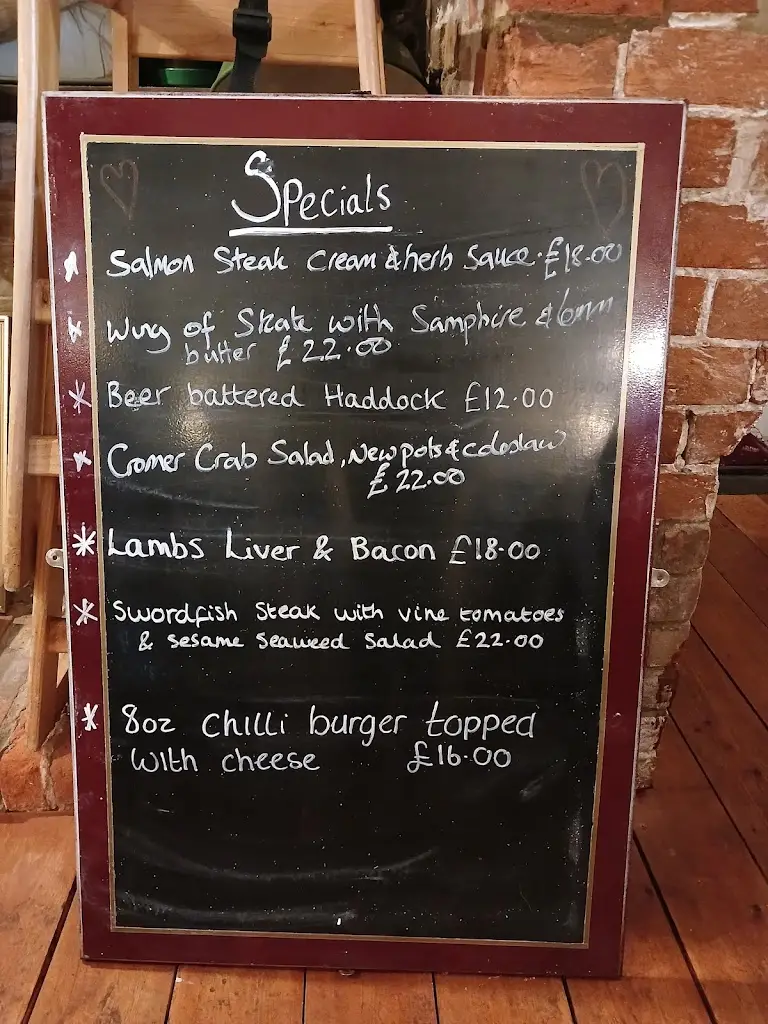 Specials
* Salmon Steak Cream & herb Sauce. £18.00
* Wing of Skate with Samphire &
butter £22.00
* Beer battered Haddock £12.00
* Cromer Crab Salad, New pots & coleslaw
£22.00
* Lambs Liver & Bacon £18.00
* Swordfish Steak with vine tomatoes
& sesame seaweed salad £22.00
* 8oz chilli burger topped
with cheese £16.00